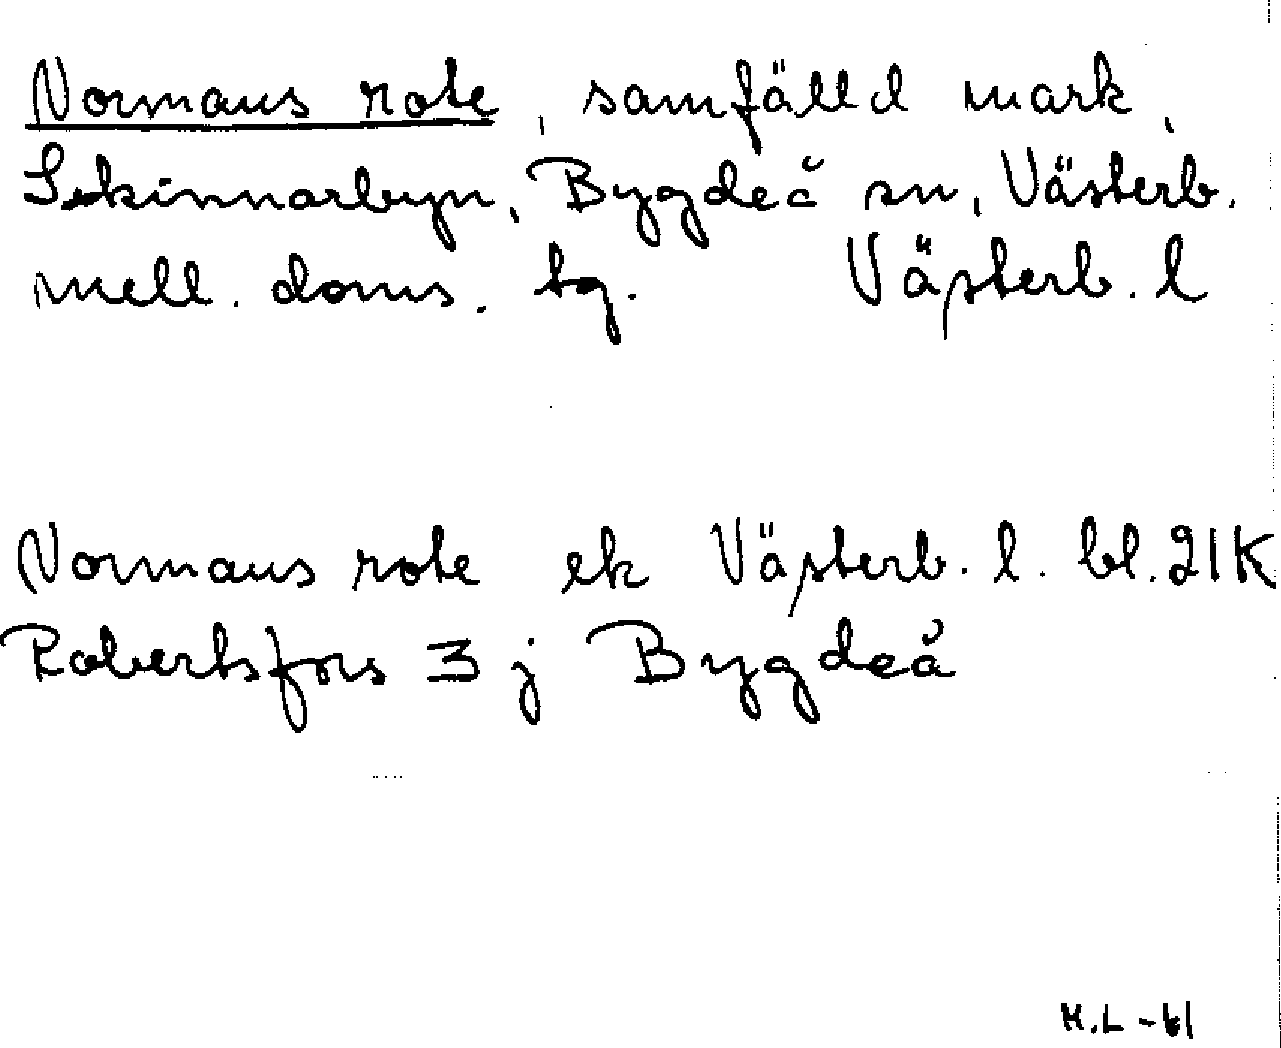 Normans rote, samfälld mark,
Skinnarbyn, Bygdeå sn, Västerb.
mell. doms. tg. Västerb. l
Normans rote ek Västerb. l. bl. 21K
Robertsfors 3 j Bygdeå
H.L - 61